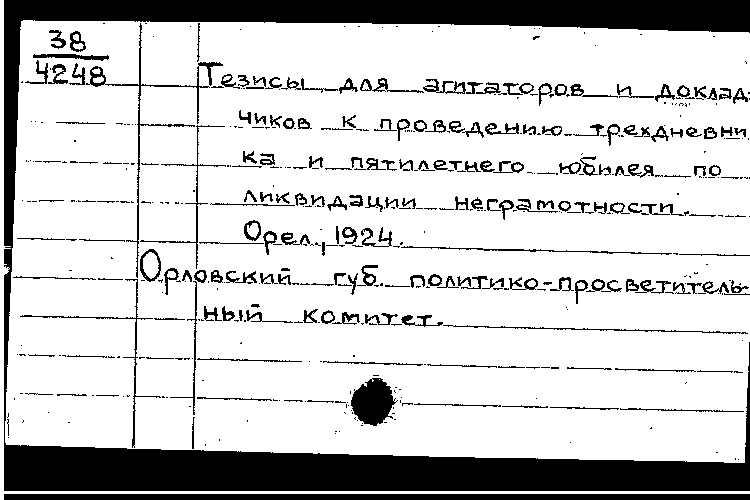 38
4248
Тезисы для агитаторов и доклад-
чиков к проведению трехдневни
ка и пятилетнего юбилея по
ликвидации неграмотности.
Орел, 1924.
Орловский губ. политико-просветитель-
ный комитет.